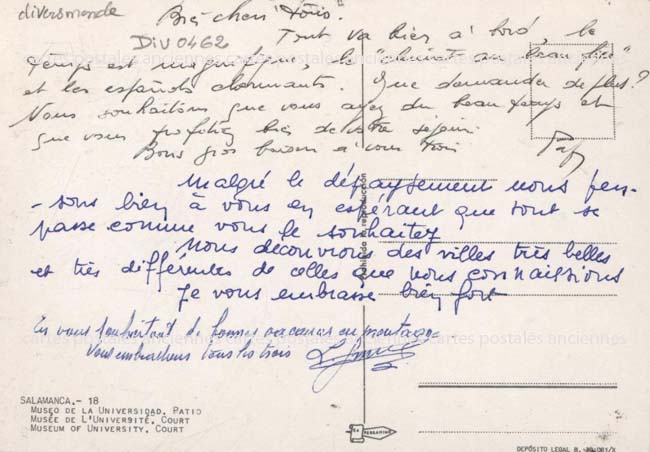 diversmonde
Div0462
Bien chers Trois.
Tout va bien à bord, le
temps est magnifique, le
et les español charmants. Que demander de plus?
Nous souhaitons que vous ayez du beau temps et
que vous profitiez bien de votre séjour.
Bons gros baisers à vous trois
Papy
malgré le dépaysement nous pen-
-sons bien à vous en espérant que tout se
passe comme vous le souhaitez
nous découvrons des villes très belles
et très différentes de celles que nous connaissions
Je vous embrasse bien fort
En vous souhaitant de bonnes vacances en montagne
Vous embrassons tous les trois
cartes postales anciennes cartes postales anciennes cartes postales anciennes
SALAMANCA.- 18
MUSEO DE LA UNIVERSIDAD, PATIO
MUSÉE DE L'UNIVERSITÉ, COURT
MUSEUM OF UNIVERSITY, COURT
Prohibida la reproducción
Ed. PERGAMINO
DEPÓSITO LEGAL B.